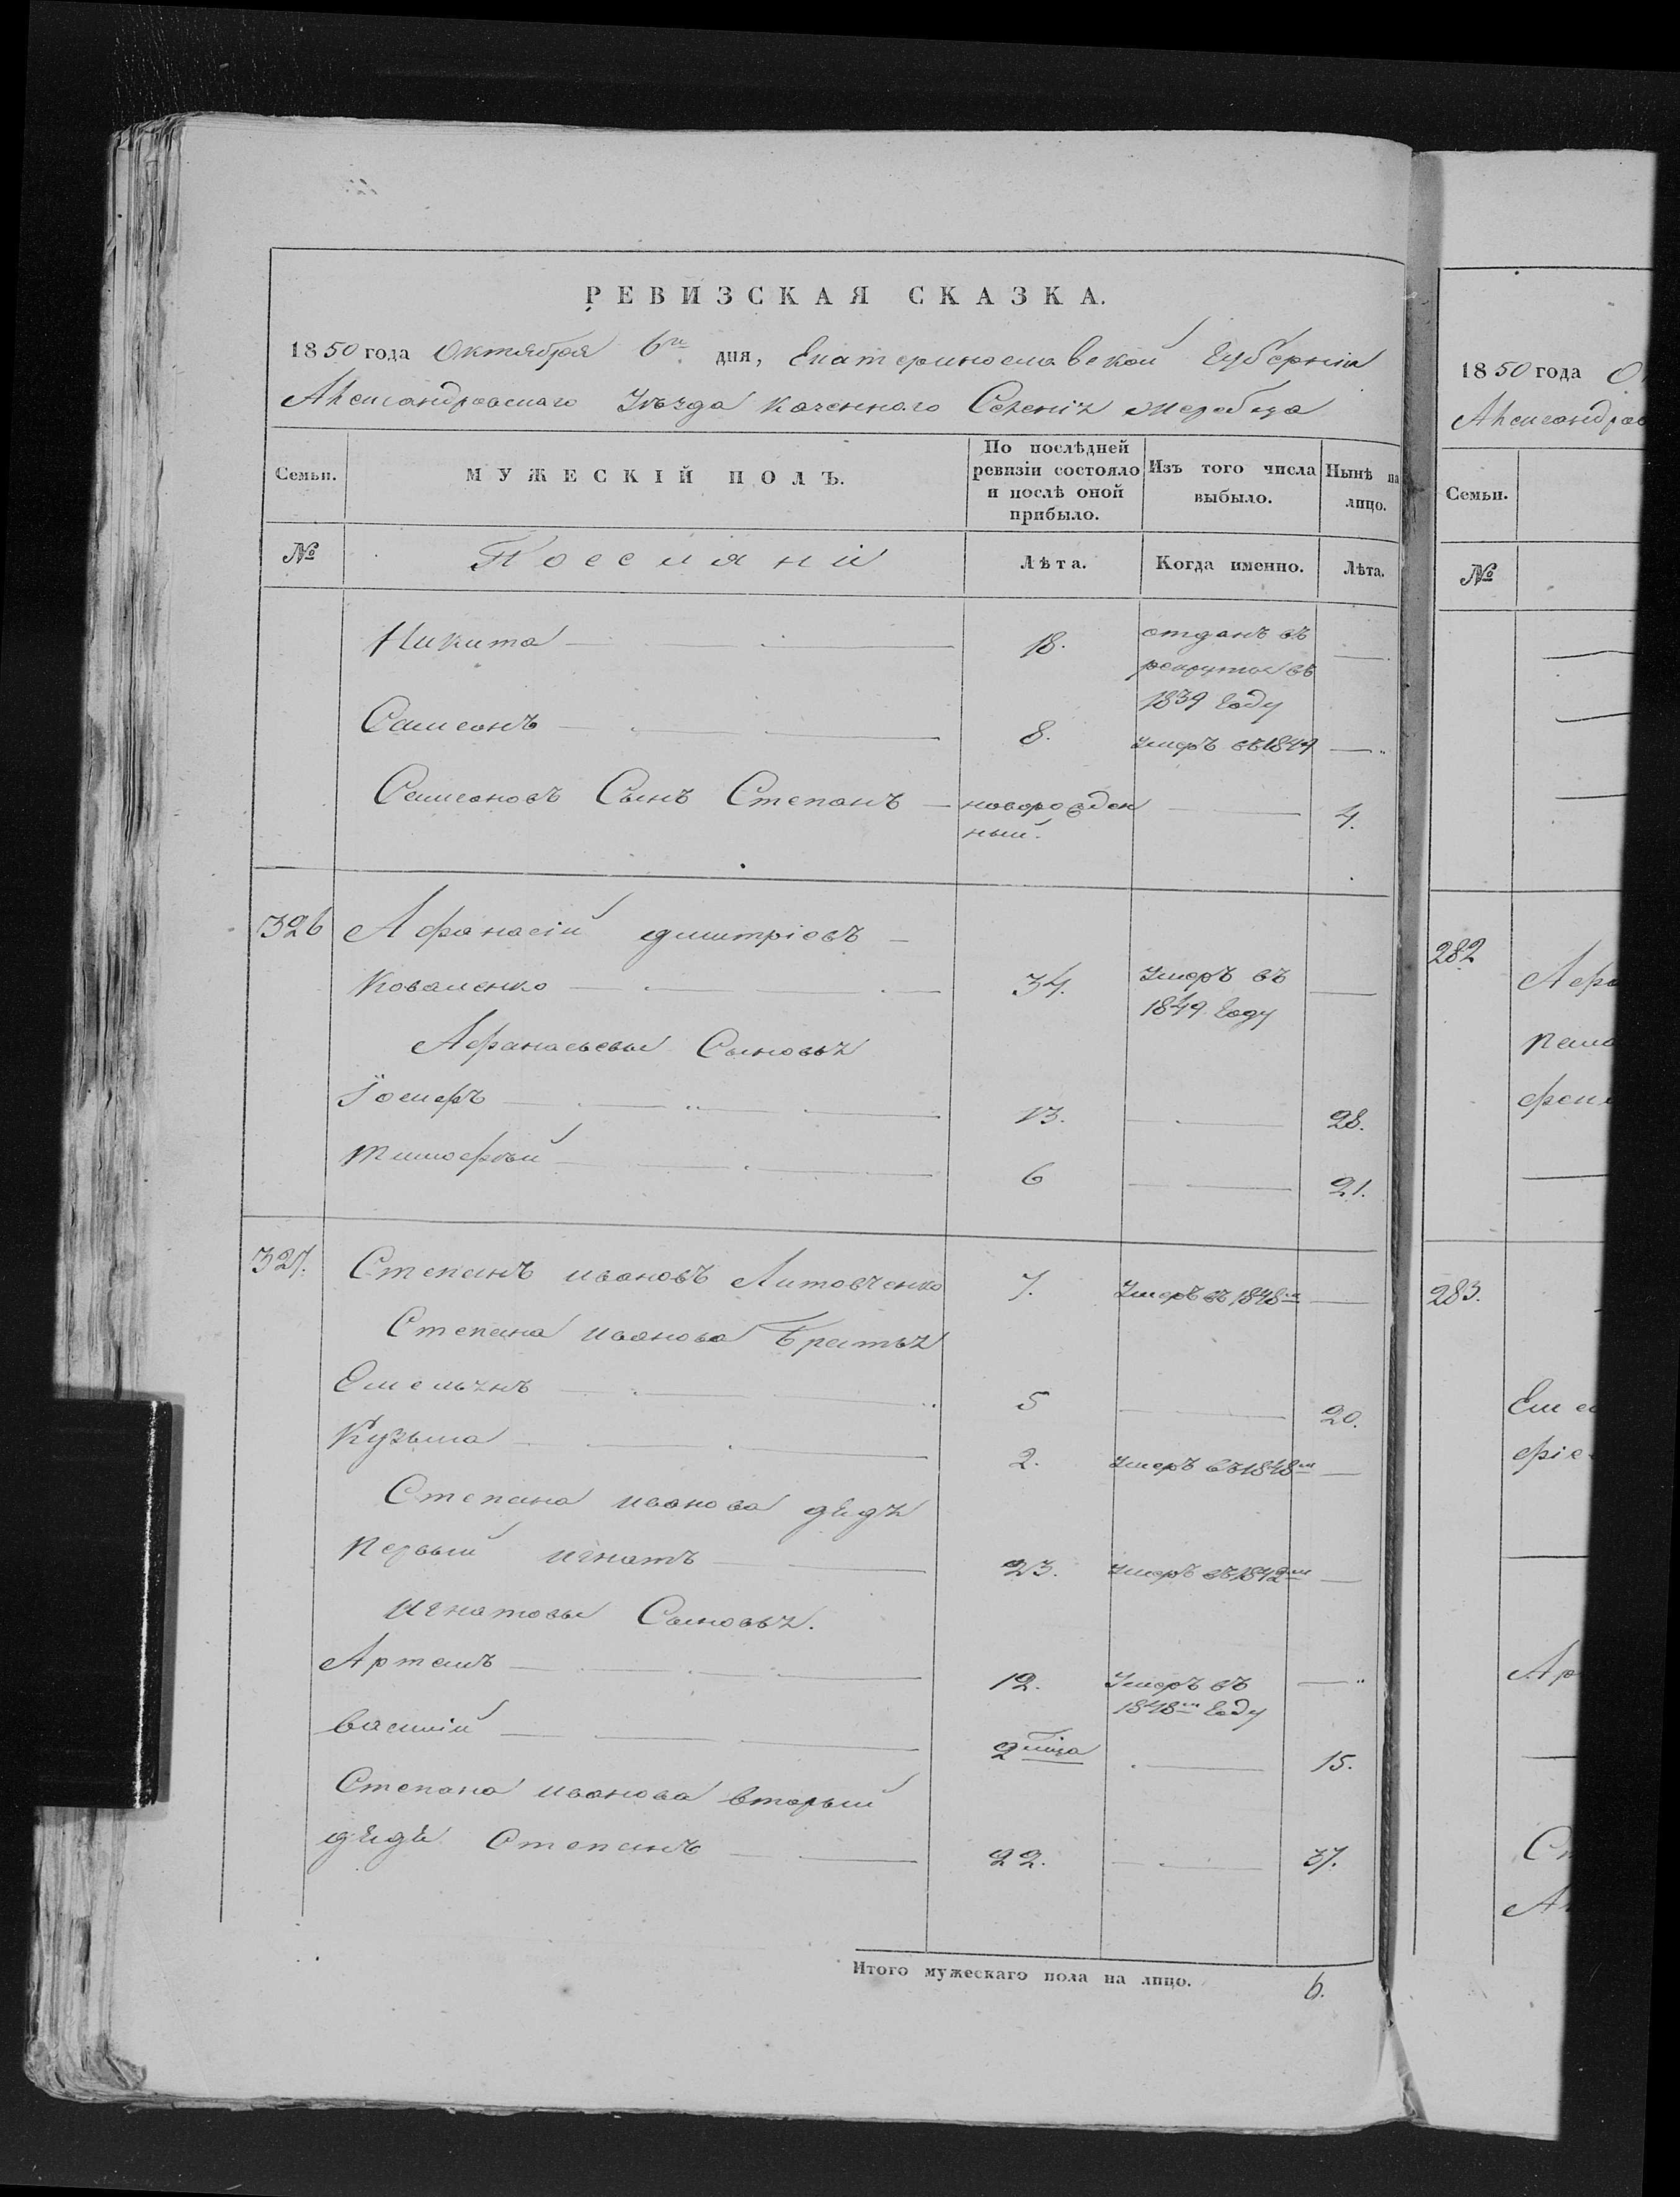 РЕВИЗСКАЯ СКАЗКА.
1850 года Октября 6го дня, Екатеринославской Губерніи
Александровскаго Уѣзда казеннаго Селенія Жеребца
Семьи.
МУЖЕСКІЙ ПОЛЪ.
По послѣдней ревизіи состояло и послѣ оной прибыло.
Изъ того числа выбыло.
Нынѣ на лицо.
№
Лѣта.
Когда именно.
Лѣта.
Никита 18. отданъ въ рекруты въ 1839 Году
Самсонъ 8. умеръ въ 1849
Самсоновъ Сынъ Степанъ новорожденный. 4.
326 Афанасій дмитріевъ
Коваленко 34. умеръ въ 1849 Году
Афанасьевы Сыновья
Іосифъ 13. 28.
Тимофѣй 6 21.
327. Степанъ ивановъ Литовченко 7. Умеръ въ 1848м
Степана иванова Братья
Емельянъ 5 20.
Кузьма 2. Умеръ въ 1848м
Степана иванова дядя
первый игнатъ 23. Умеръ въ 1842м
игнатовы Сыновья.
Артемъ 12. Умеръ въ 1848м Году
василій 2 мца 15.
Степана иванова вторый
дядя Степанъ 22. 37.
Итого мужескаго пола на лицо. 6.
1850 года
Семьи.
№
282
283.